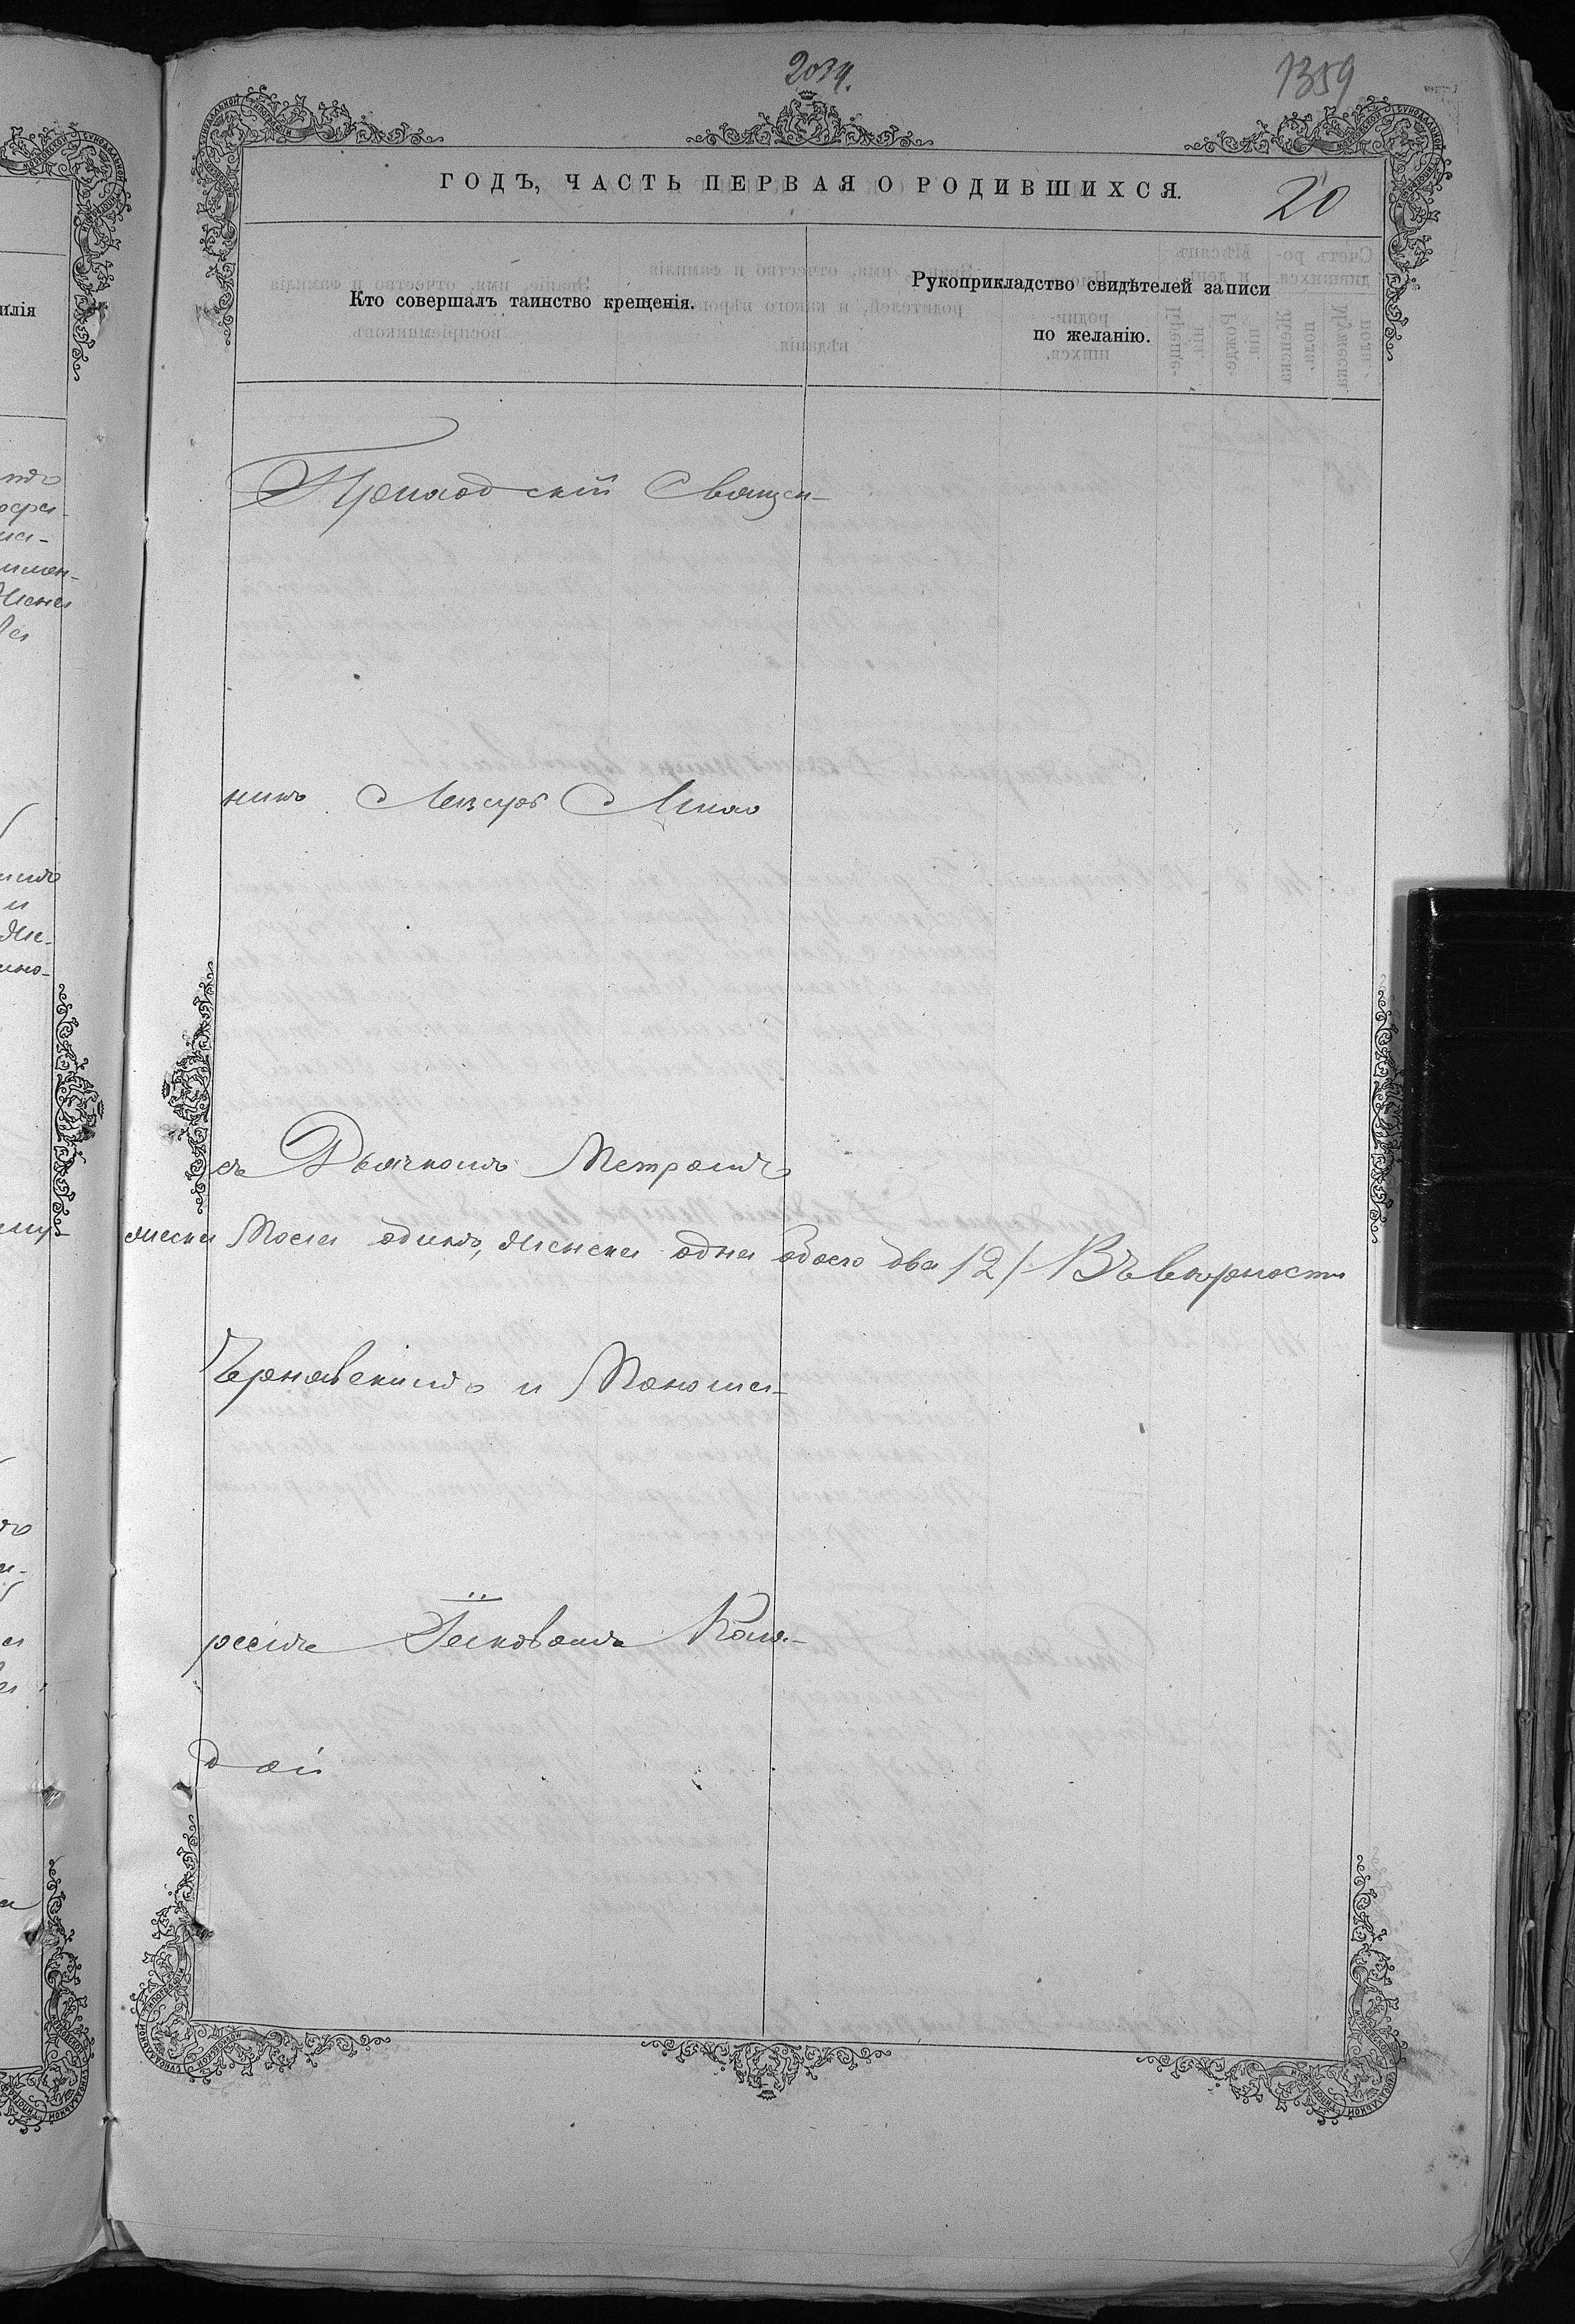 2034.
1359
ГОДЪ, ЧАСТЬ ПЕРВАЯ О РОДИВШИХСЯ.
20
Кто совершалъ таинство крещенія.
Рукоприкладство свидѣтелей записи
по желанію.
Приходскій Священ-
никъ Лазарь
съ Дьячкомъ Петромъ
жеска пола одинъ, женска одна обоего два /2/ Въ вѣрности
Чернявскимъ и Понома-
ремъ Іаковомъ